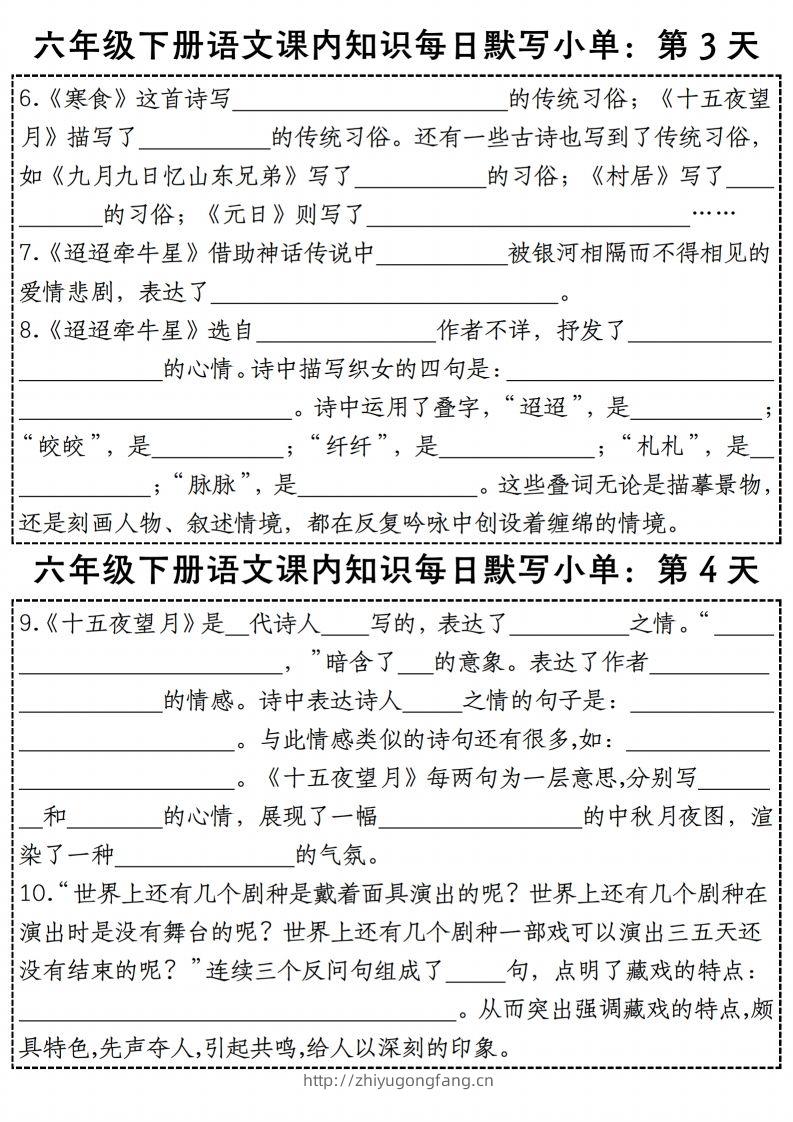 六年级下册语文课内知识每日默写小单：第 3 天
6.《寒食》这首诗写_______________________的传统习俗；《十五夜望
月》描写了___________的传统习俗。还有一些古诗也写到了传统习俗，
如《九月九日忆山东兄弟》写了___________的习俗；《村居》写了____
_______的习俗；《元日》则写了___________________________……
7.《迢迢牵牛星》借助神话传说中___________被银河相隔而不得相见的
爱情悲剧，表达了_____________________________。
8.《迢迢牵牛星》选自_______________作者不详，抒发了____________
____________的心情。诗中描写织女的四句是：______________________
_______________________。诗中运用了叠字，“迢迢”，是___________；
“皎皎”，是___________；“纤纤”，是_____________；“札札”，是__
___________；“脉脉”，是_______________。这些叠词无论是描摹景物，
还是刻画人物、叙述情境，都在反复吟咏中创设着缠绵的情境。
六年级下册语文课内知识每日默写小单：第 4 天
9.《十五夜望月》是__代诗人____写的，表达了__________之情。“_____
______________________，”暗含了___的意象。表达了作者__________
____________的情感。诗中表达诗人_____之情的句子是：____________
__________________。与此情感类似的诗句还有很多,如：____________
__________________。《十五夜望月》每两句为一层意思,分别写______
__和________的心情，展现了一幅_________________的中秋月夜图，渲
染了一种_______________的气氛。
10.“世界上还有几个剧种是戴着面具演出的呢？世界上还有几个剧种在
演出时是没有舞台的呢？世界上还有几个剧种一部戏可以演出三五天还
没有结束的呢？”连续三个反问句组成了_____句，点明了藏戏的特点：
____________________________________。从而突出强调藏戏的特点,颇
具特色,先声夺人,引起共鸣,给人以深刻的印象。
http://zhiyugongfang.cn